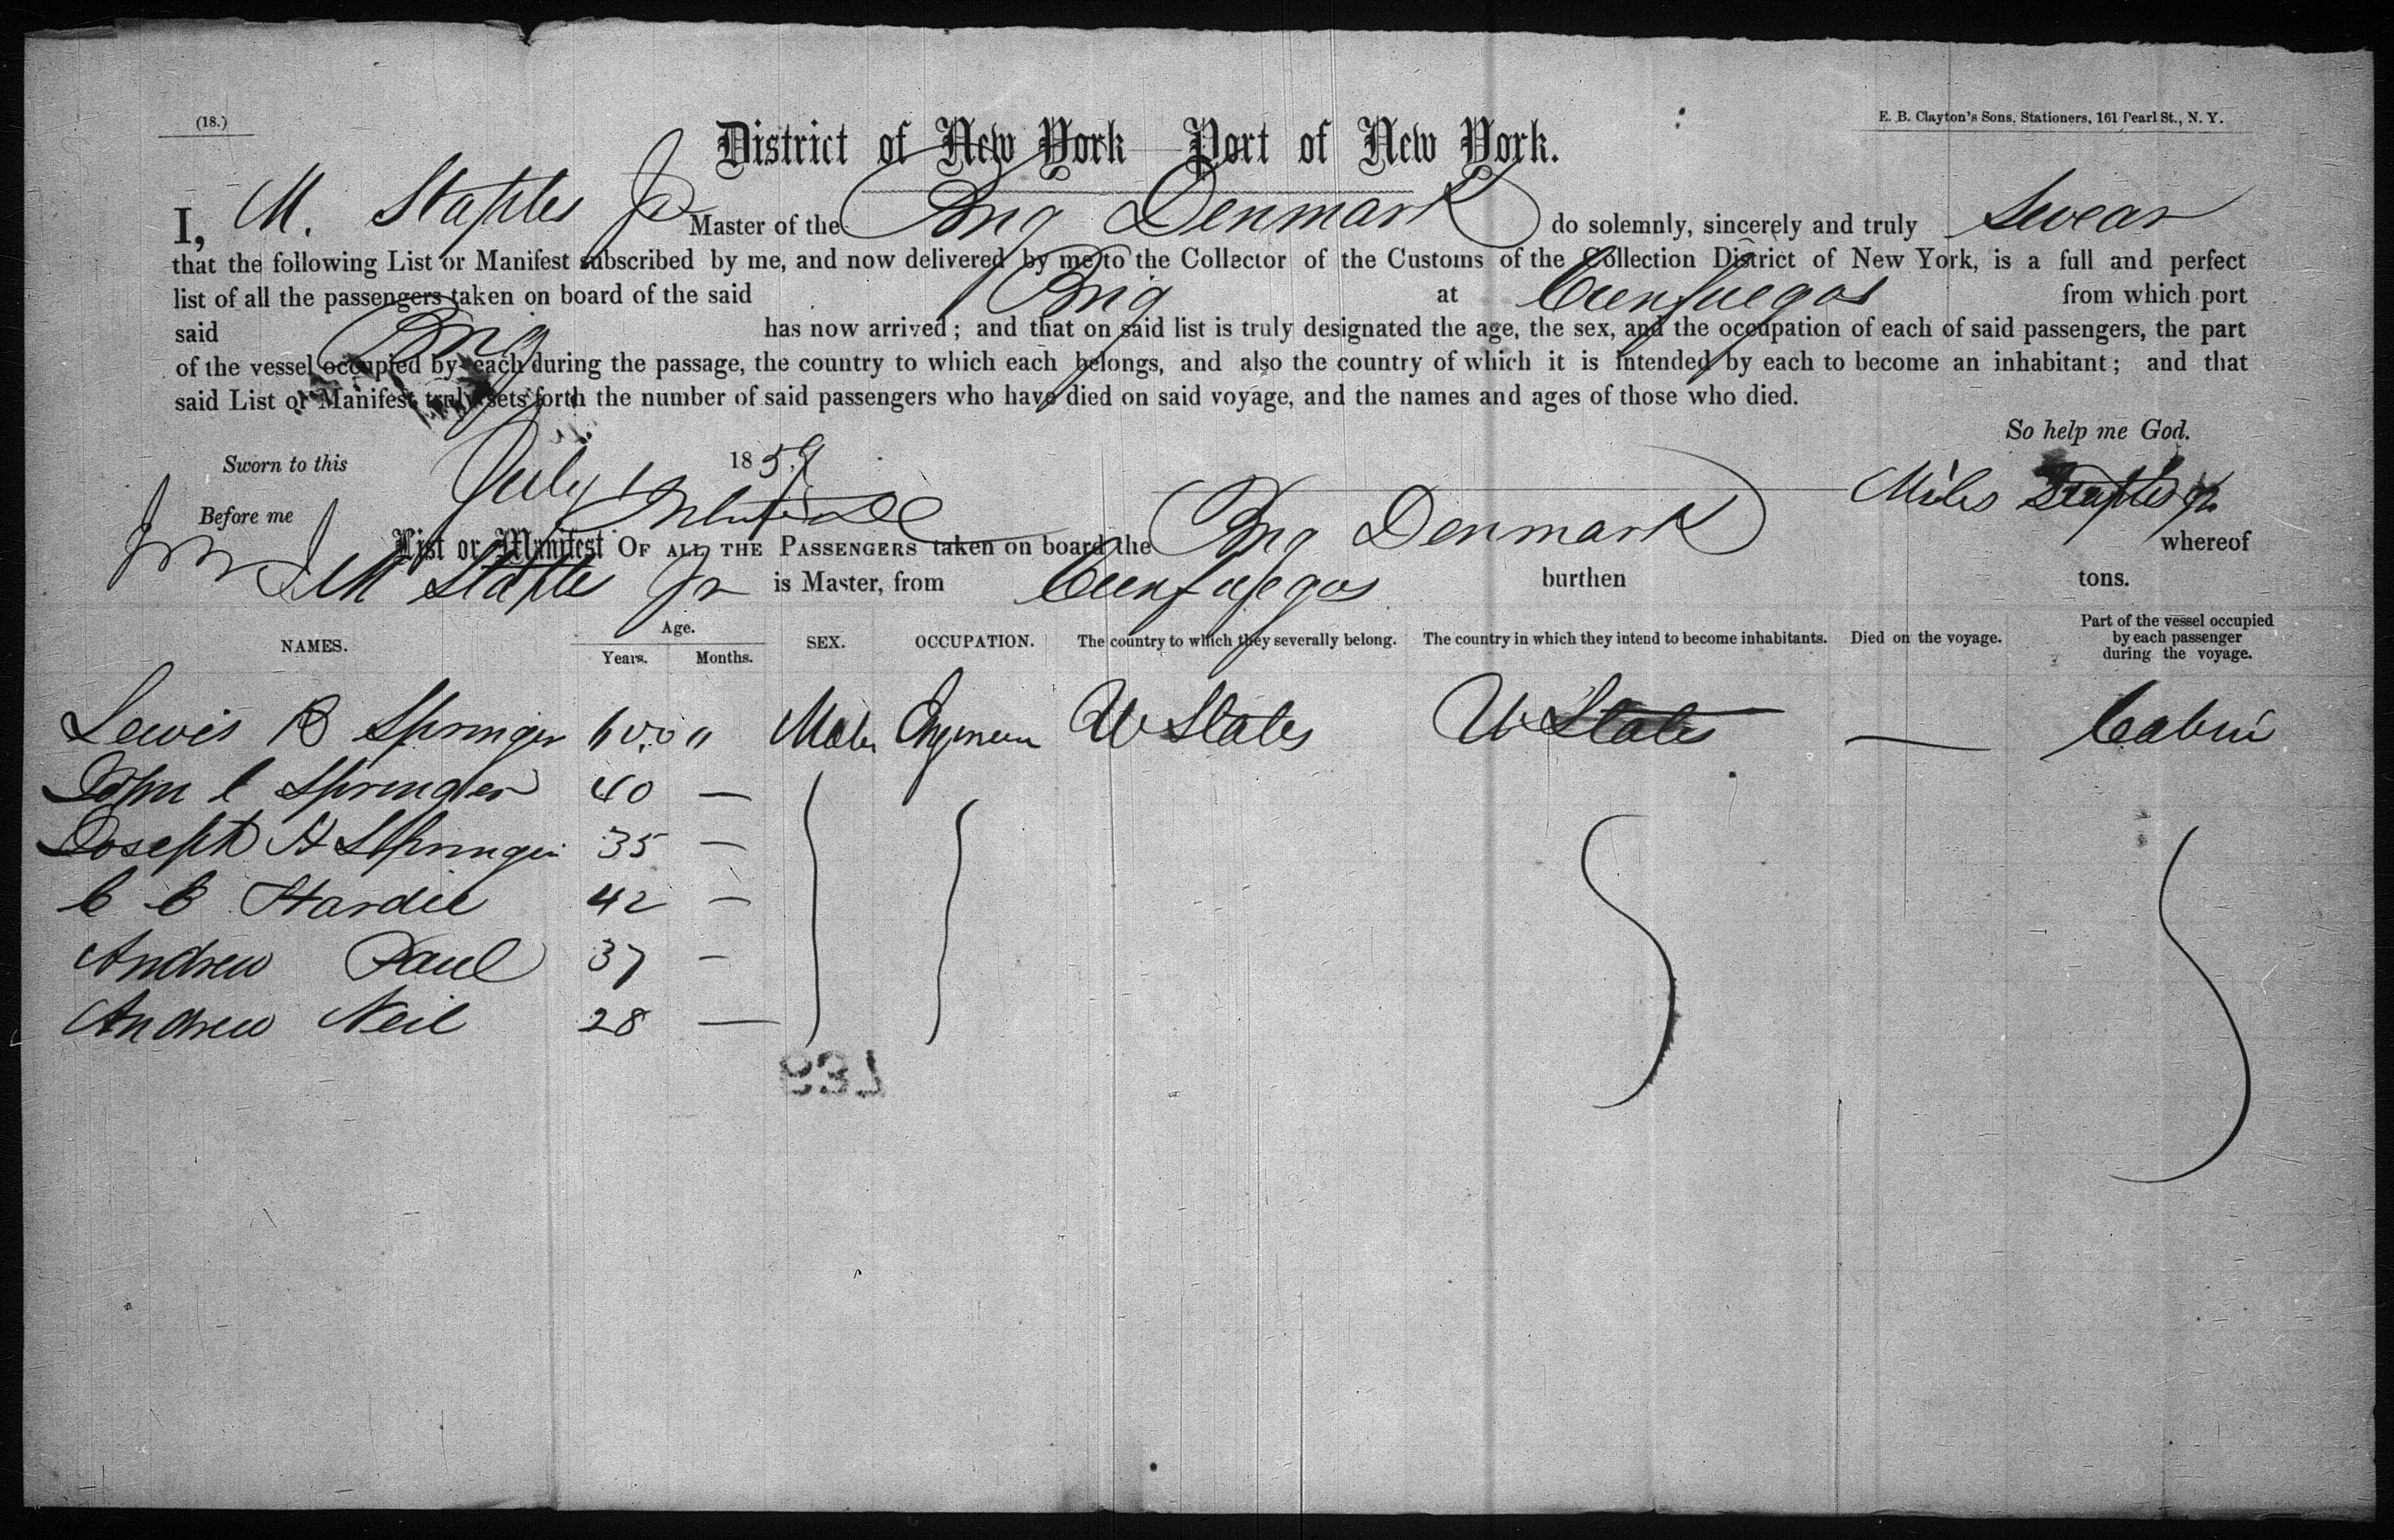 (18.)
E. B. Clayton's Sons, Stationers, 161 Pearl St., N. Y.
District of New York—Port of New York.
I, M. Staples Jr Master of the Brig Denmark do solemnly, sincerely and truly Swear
that the following List or Manifest subscribed by me, and now delivered by me to the Collector of the Customs of the Collection District of New York, is a full and perfect
list of all the passengers taken on board of the said Brig at Cienfuegos from which port
said Brig has now arrived; and that on said list is truly designated the age, the sex, and the occupation of each of said passengers, the part
of the vessel occupied by each during the passage, the country to which each belongs, and also the country of which it is intended by each to become an inhabitant; and that
said List or Manifest truly sets forth the number of said passengers who have died on said voyage, and the names and ages of those who died.
So help me God.
Sworn to this July 1 1859
Miles Staples Jr
Before me
List or Manifest OF ALL THE PASSENGERS taken on board the Brig Denmark whereof
M Staples Jr is Master, from Cienfuegos burthen tons.
NAMES. Age. Years. Months. SEX. OCCUPATION. The country to which they severally belong. The country in which they intend to become inhabitants. Died on the voyage. Part of the vessel occupied by each passenger during the voyage.
Lewis B Springer Male Engineer U States U States — Cabin
John C Springer 40 —
Joseph H Springer 35 —
C C Hardie 42 —
Andrew Paul 37 —
Andrew Neil 28 —